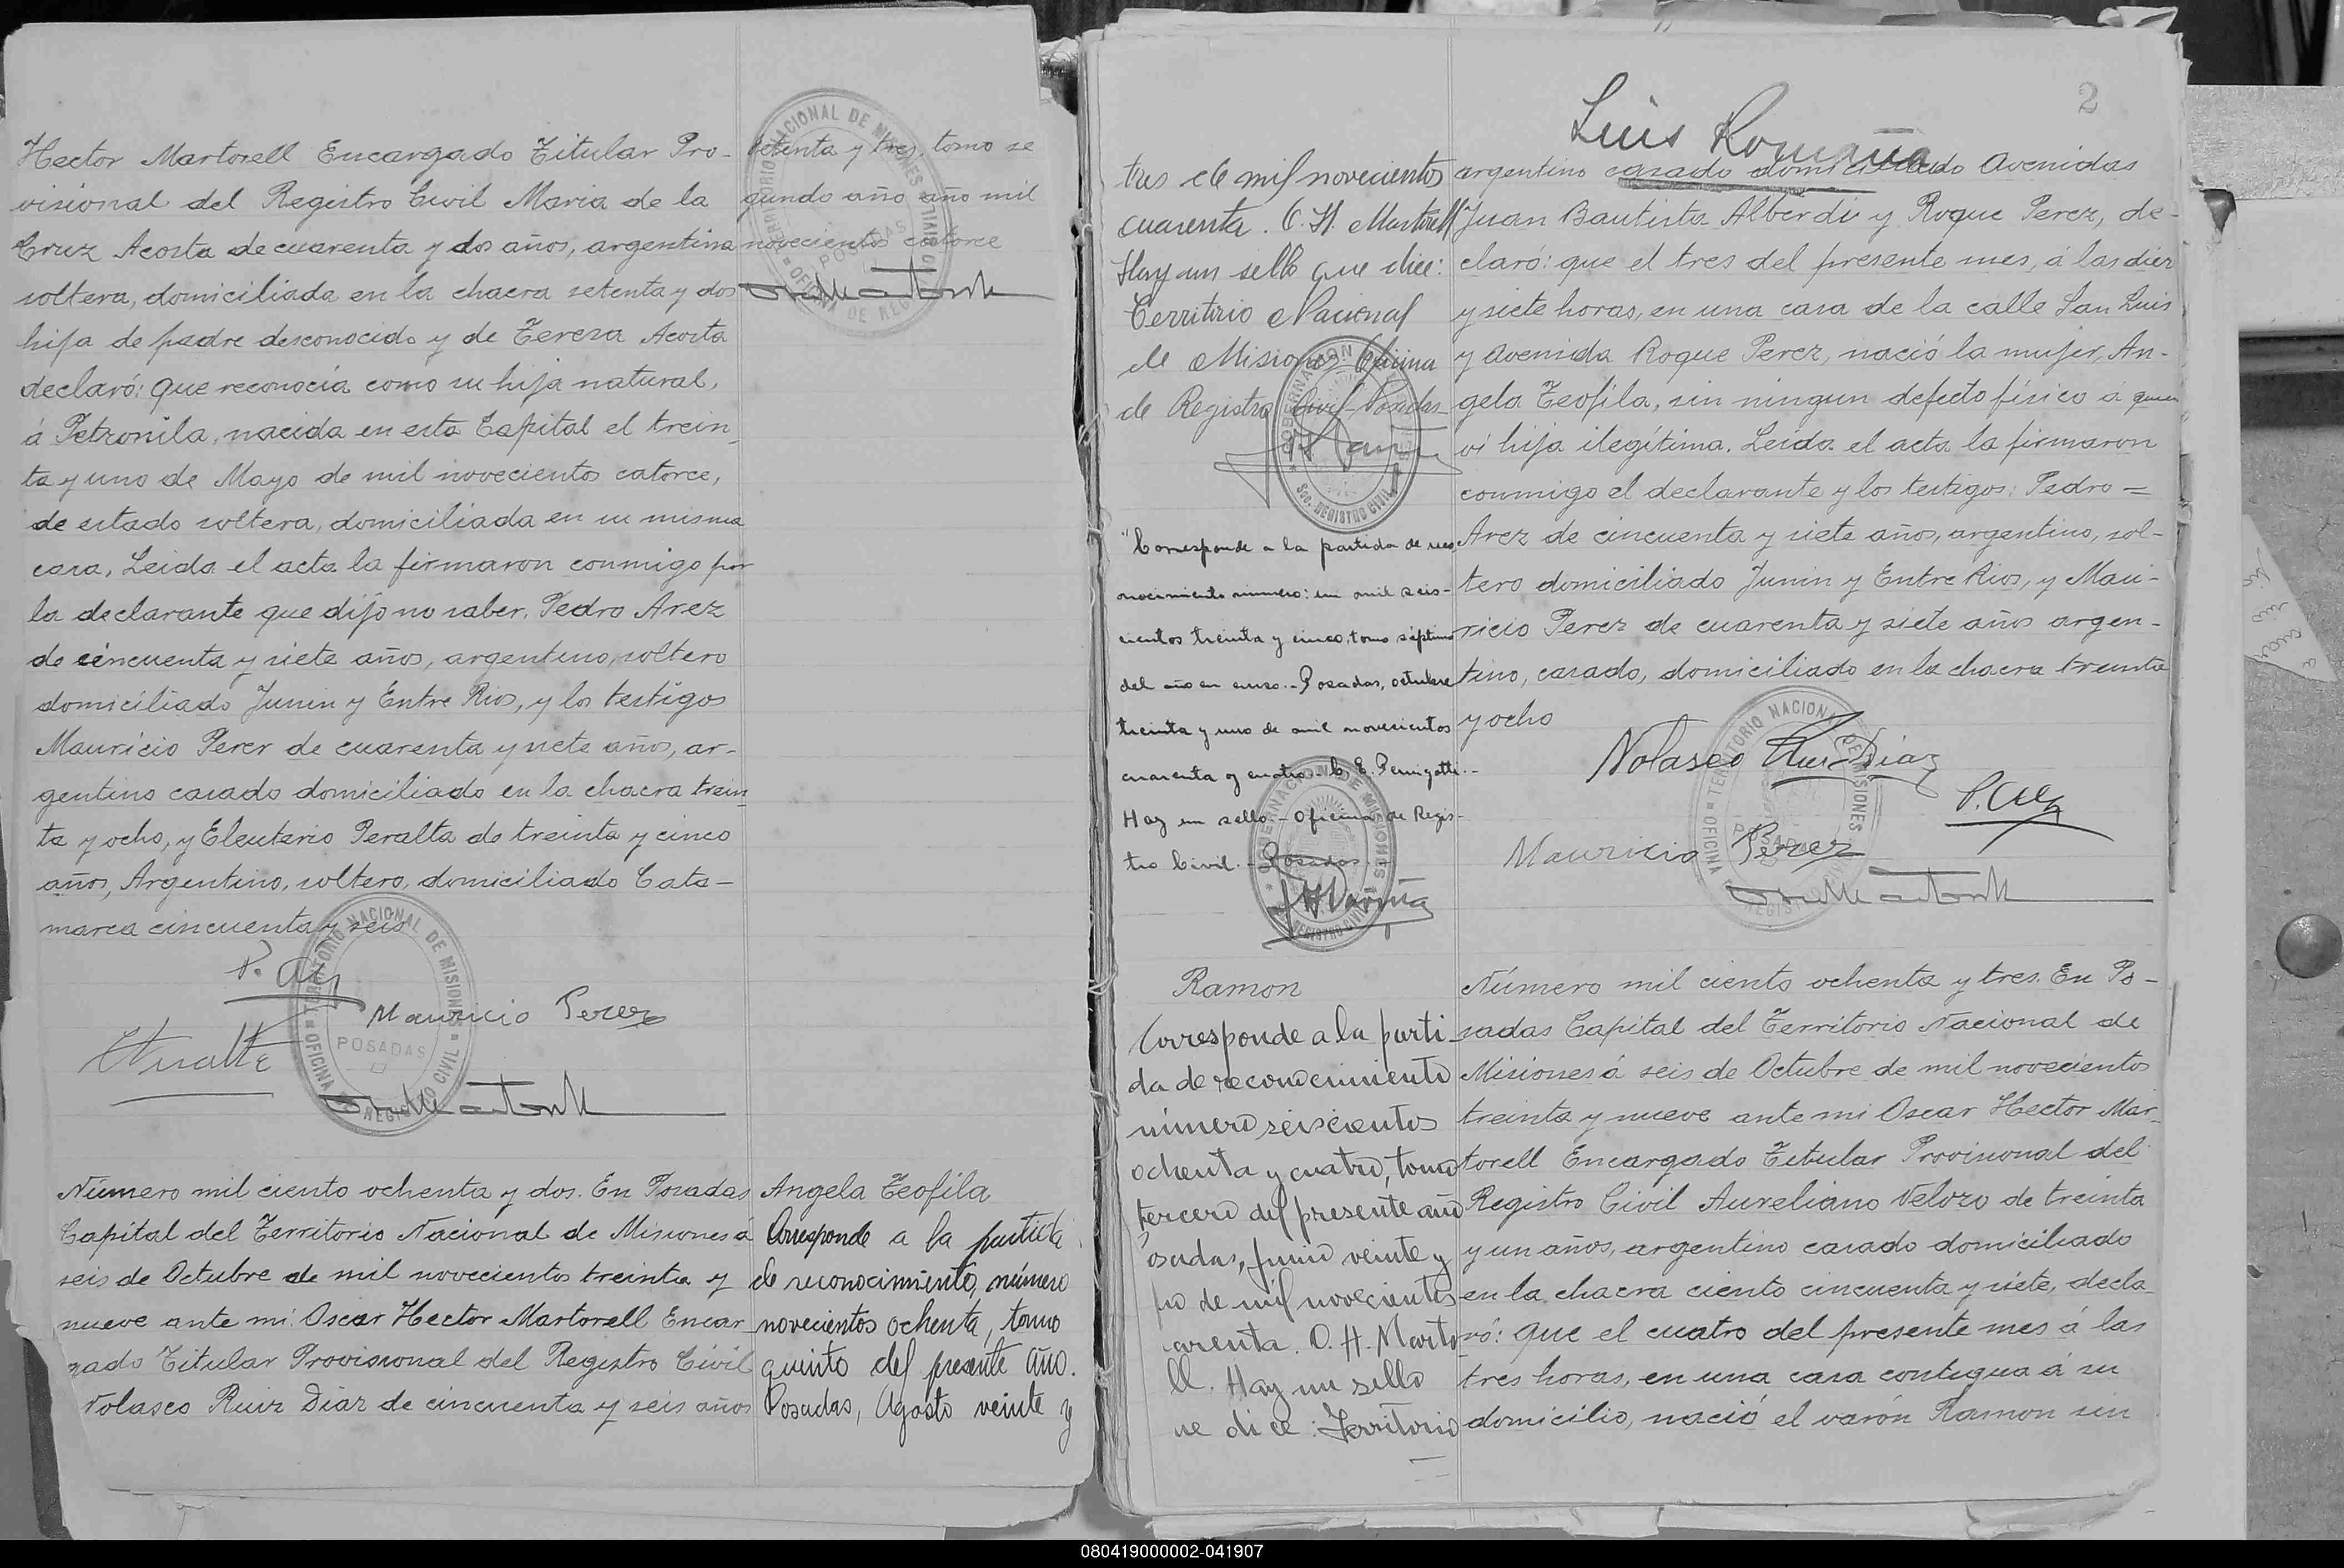 Hector Martorell Encargado Titular Pro-
visional del Registro Civil Maria de la
Cruz Acosta de cuarenta y dos años, argentina
soltera, domiciliada en la chacra setenta y dos
hija de padre desconocido y de Teresa Acosta
declaró: que reconocía como su hija natural,
á Petronila, nacida en esta Capital el trein
ta y uno de Mayo de mil novecientos catorce,
de estado soltera, domiciliada en su misma
casa, Leida el acta la firmaron conmigo por
la declarante que dijo no saber, Pedro Arez
de cincuenta y siete años, argentino, soltero
domiciliado Junin y Entre Rios, y los testigos
Mauricio Perez de cuarenta y siete años, ar-
gentino casado domiciliado en la chacra trein
ta y ocho, y Eleuterio Peralta de treinta y cinco
años, Argentino, soltero, domiciliado Cata-
marca cincuenta y seis
Mauricio Perez
TERRITORIO NACIONAL DE MISIONES
OFICINA DE REGISTRO CIVIL
POSADAS
Número mil ciento ochenta y dos. En Posadas
Capital del Territorio Nacional de Misiones á
seis de Octubre de mil novecientos treinta y
nueve ante mi: Oscar Hector Martorell Encar
gado Titular Provisional del Registro Civil
Nolasco Ruiz Diaz de cincuenta y seis años
y tres, tomo se
gundo año año mil
novecientos catorce
TERRITORIO NACIONAL DE MISIONES
OFICINA DE REGISTRO CIVIL
POSADAS
Angela Teofila
Corresponde a la partida
de reconocimiento, número
novecientos ochenta, tomo
quinto del presente año.
Posadas, Agosto veinte y
tres de mil novecientos
cuarenta. O. H. Martorell
Hay un sello que dice:
Territorio Nacional
de Misiones Oficina
de Registro Civil-Posadas
GOBERNACION
Sec. REGISTRO CIVIL
"Corresponde a la partida de reco
nocimiento número: un mil seis-
cientos treinta y cinco, tomo séptimo
del año en curso.- Posadas, octubre
treinta y uno de mil novecientos
cuarenta y cuatro.-
Hay un sello - Oficina de Regis-
tro Civil. - Posadas.
GOBERNACION DE MISIONES
REGISTRO CIVIL
Ramon
Corresponde a la parti
da de reconocimiento
número seiscientos
ochenta y cuatro, tomo
tercero del presente año
osadas, junio veinte y
de mil novecientos
arenta. O. H. Marto
ll. Hay un sello
ue dice: Territorio
2
Luis Romaña
argentino casado domiciliado Avenidas
Juan Bautista Alberdi y Roque Perez, de-
claró: que el tres del presente mes, á las diez
y siete horas, en una casa de la calle San Luis
y Avenida Roque Perez, nació la mujer, An-
gela Teofila, sin ningun defecto físico á quien
vi hija ilegítima. Leida el acta la firmaron
conmigo el declarante y los testigos: Pedro =
Arez de cincuenta y siete años, argentino, sol-
tero domiciliado Junin y Entre Rios, y Mau-
ricio Perez de cuarenta y siete años argen-
tino, casado, domiciliado en la chacra treinta
y ocho
Nolasco Ruiz Diaz
Mauricio Perez
TERRITORIO NACIONAL DE MISIONES
OFICINA REGISTRO CIVIL
POSADAS
Número mil ciento ochenta y tres. En Po-
sadas Capital del Territorio Nacional de
Misiones á seis de Octubre de mil novecientos
treinta y nueve ante mi Oscar Hector Mar
torell Encargado Titular Provisional del
Registro Civil Aureliano Velozo de treinta
y un años, argentino casado domiciliado
en la chacra ciento cincuenta y siete, decla
ró: que el cuatro del presente mes á las
tres horas, en una casa contigua á su
domicilio, nació el varón Ramon sin
080419000002-041907